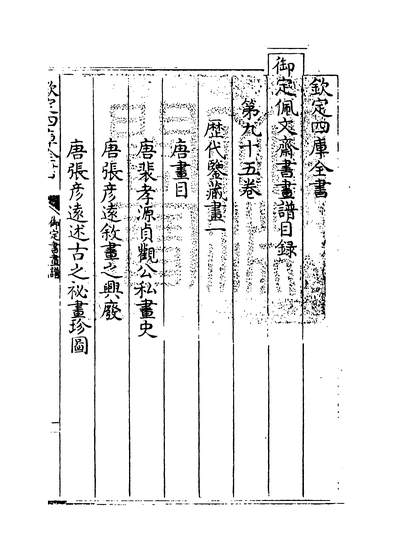 欽定四庫全書
御定佩文齋書畫譜目錄
第九十五卷
歷代鑒藏畫一
唐畫目
唐裴孝源貞觀公私畫史
唐張彥遠敘畫之興廢
唐張彥遠述古之祕畫珍圖
欽定四庫全書
御定書畫譜
一